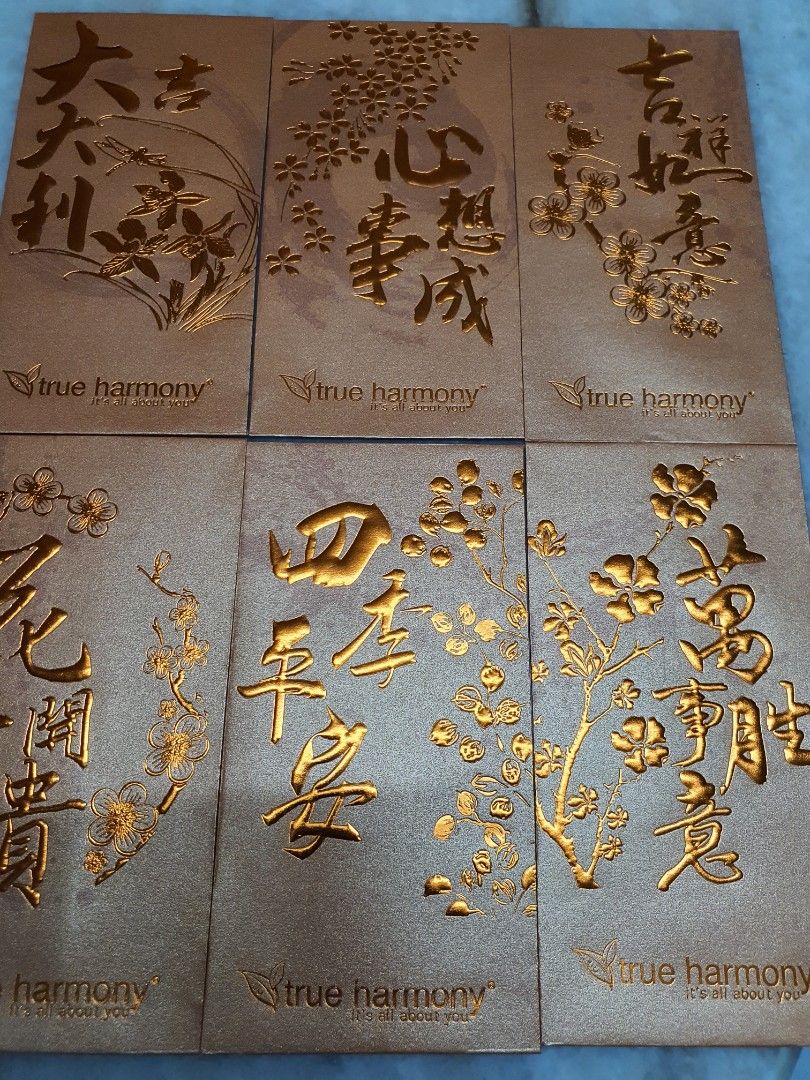 大吉
大利
true harmony®
it's all about you
心想
事成
true harmony™
it's all about you
吉祥
如意
true harmony®
it's all about you
花開
貴
harmony®
it's all about you
四季
平安
true harmony®
it's all about you
萬事
勝意
true harmony
it's all about you